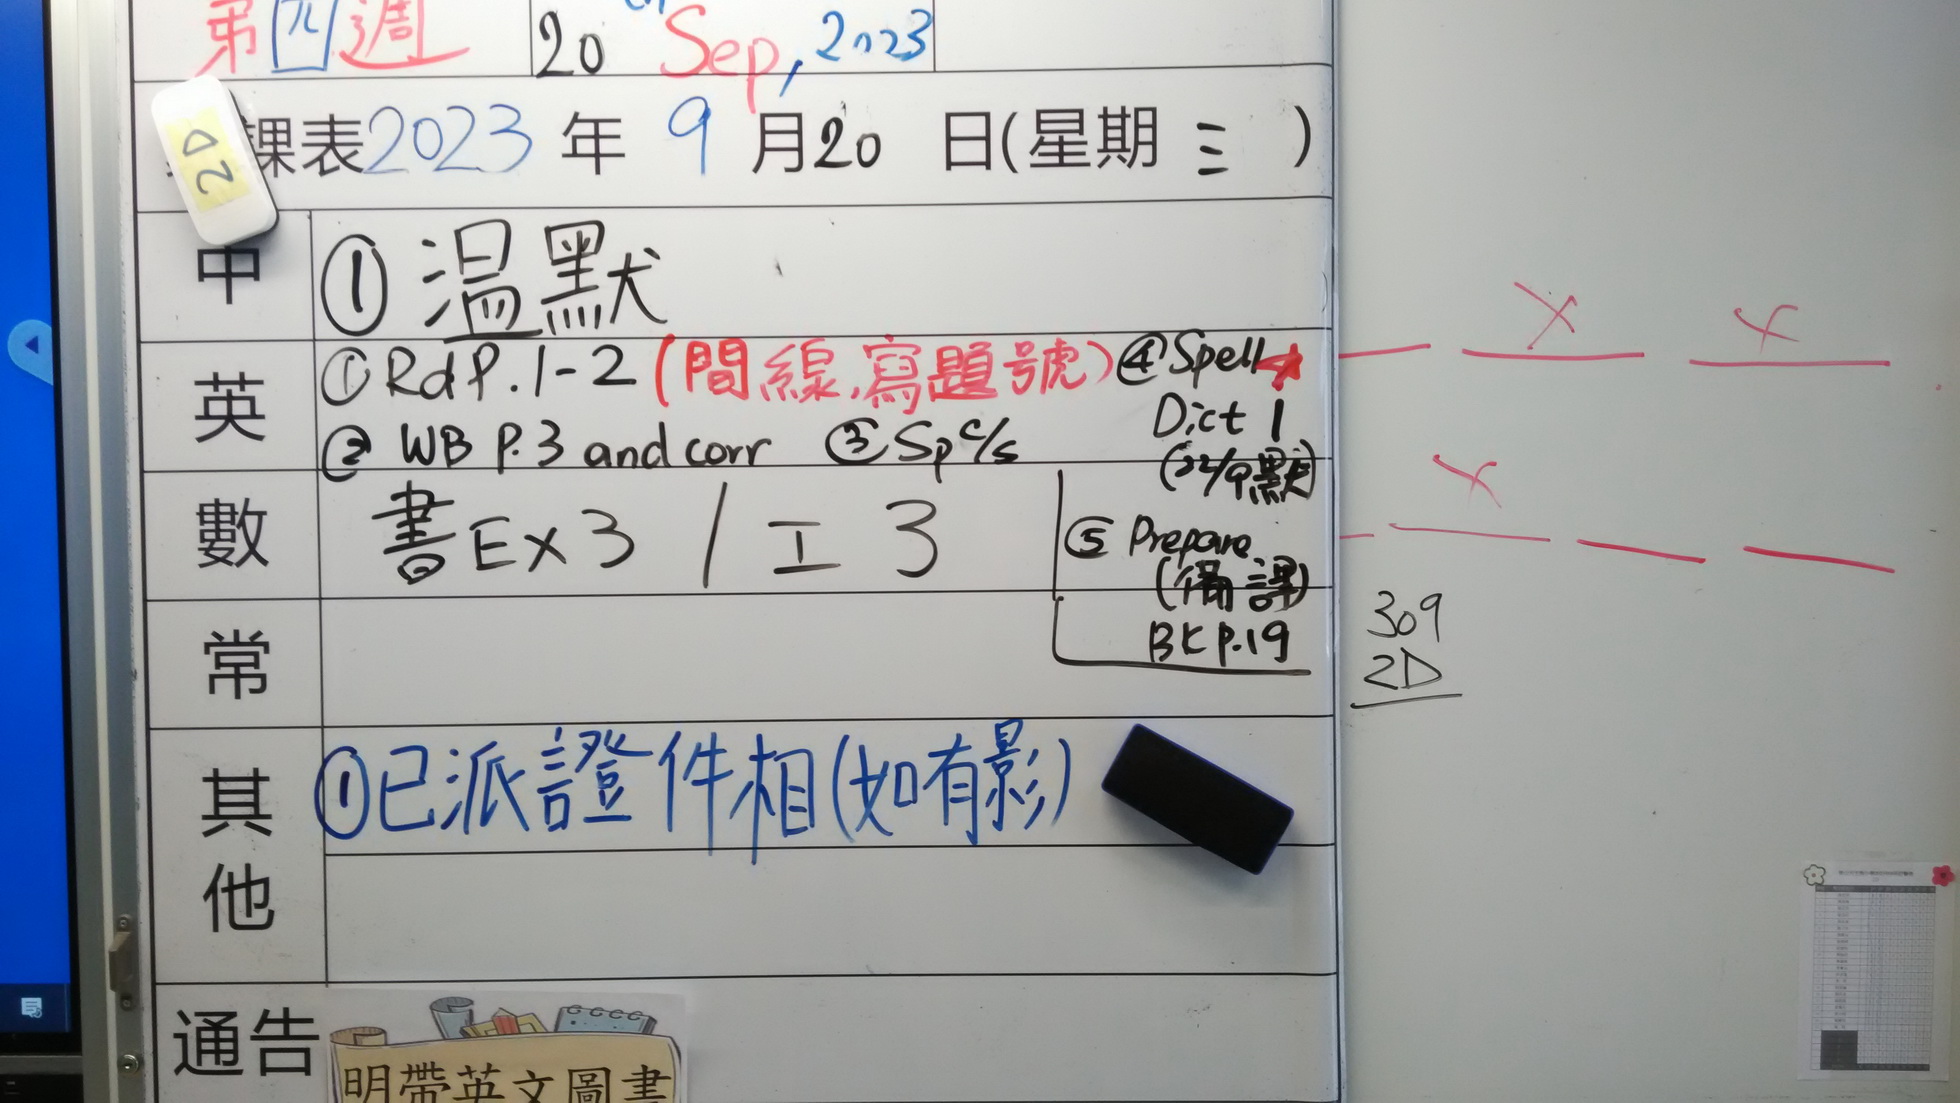 第四週 20th Sep, 2023
課表2023年 9月20日(星期三)
2D
中 ① 温默
英 ①Rd P.1-2 (間線,寫題號)
② WB P.3 and corr ③ Sp c/s
④ Spell
Dict 1
(22/9默)
數 書Ex3 / 工3
⑤ Prepare
(備課)
BK P.19
常
其他 ①已派證件相(如有影)
通告
明帶英文圖書
309
2D